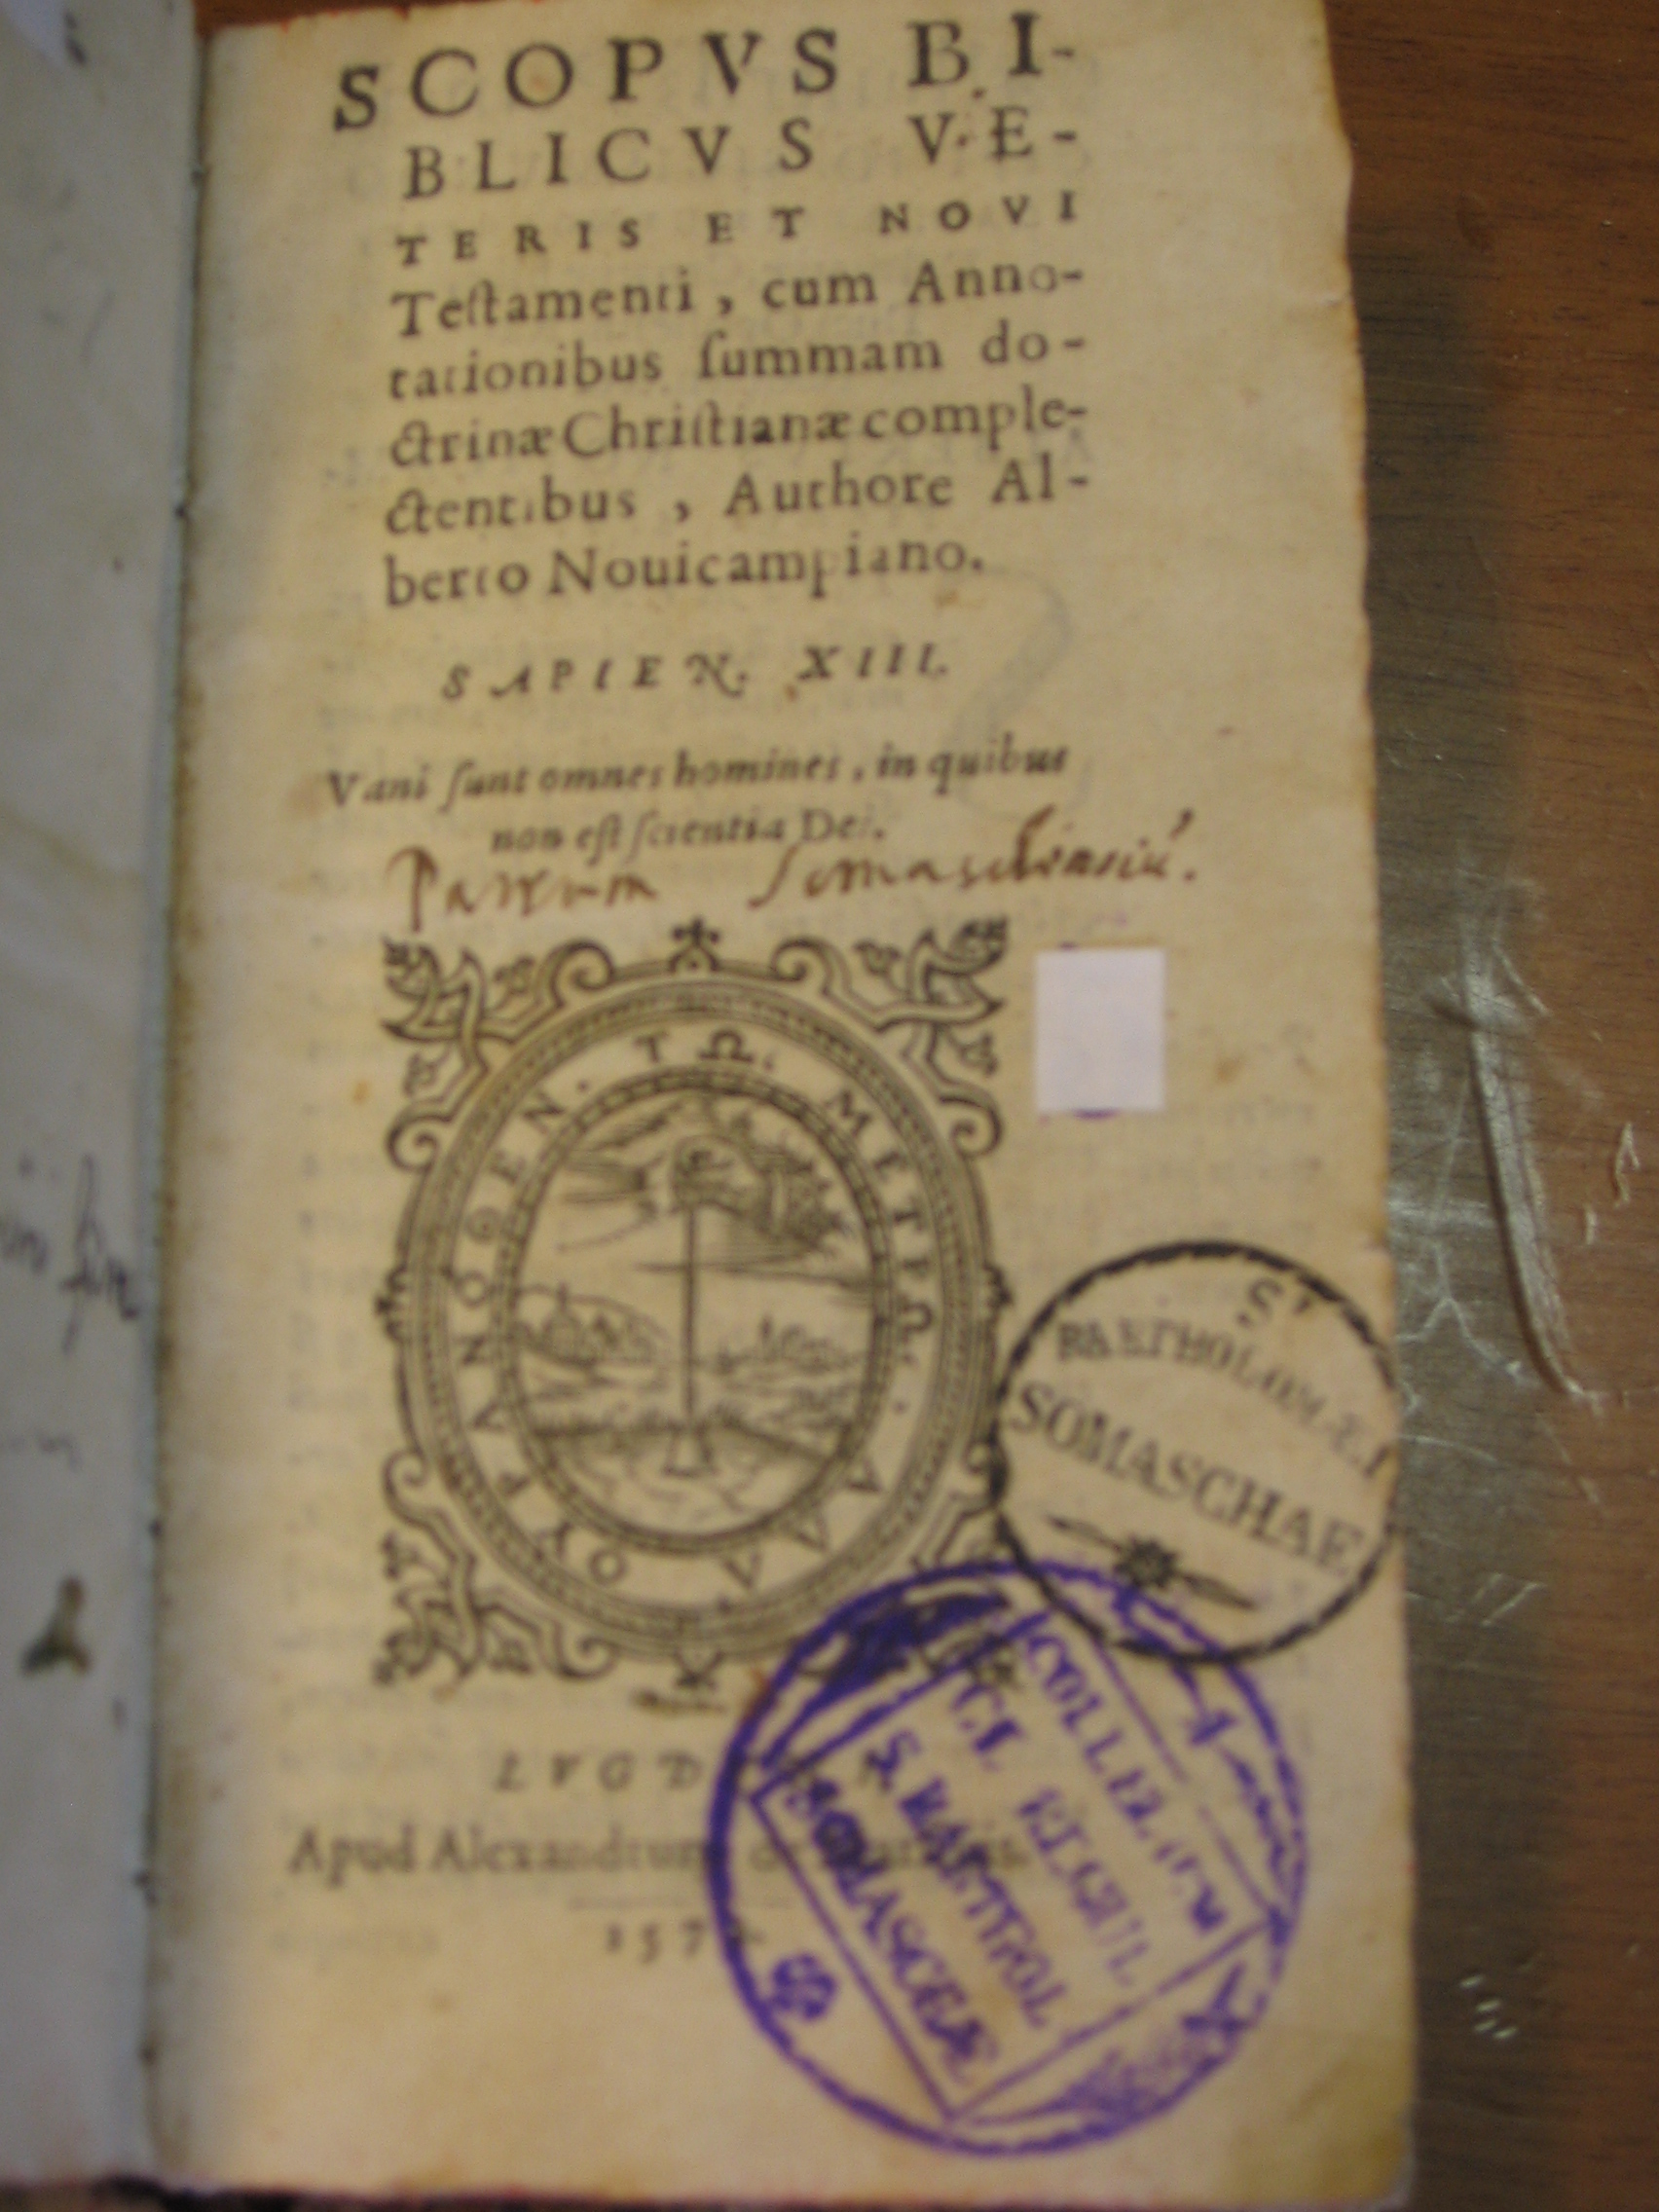 SCOPVS BI-
BLICVS VE-
TERIS ET NOVI
Teſtamenti, cum Anno-
tationibus ſummam do-
ctrinæ Chriſtianæ comple-
ctentibus, Authore Al-
berto Nouicampiano.
SAPIEN. XIII.
Vani ſunt omnes homines, in quibus
non eſt ſcientia Dei.
Patrum Somaschensiu'.
ΤΩ. ΜΕΤΡΩ.
S^T
BARTHOLOMÆI
SOMASCHAE
COLLEGIUM
CL. REGUL.
S. BARTHOL.
SOMASCHÆ
Apud Alexandrum